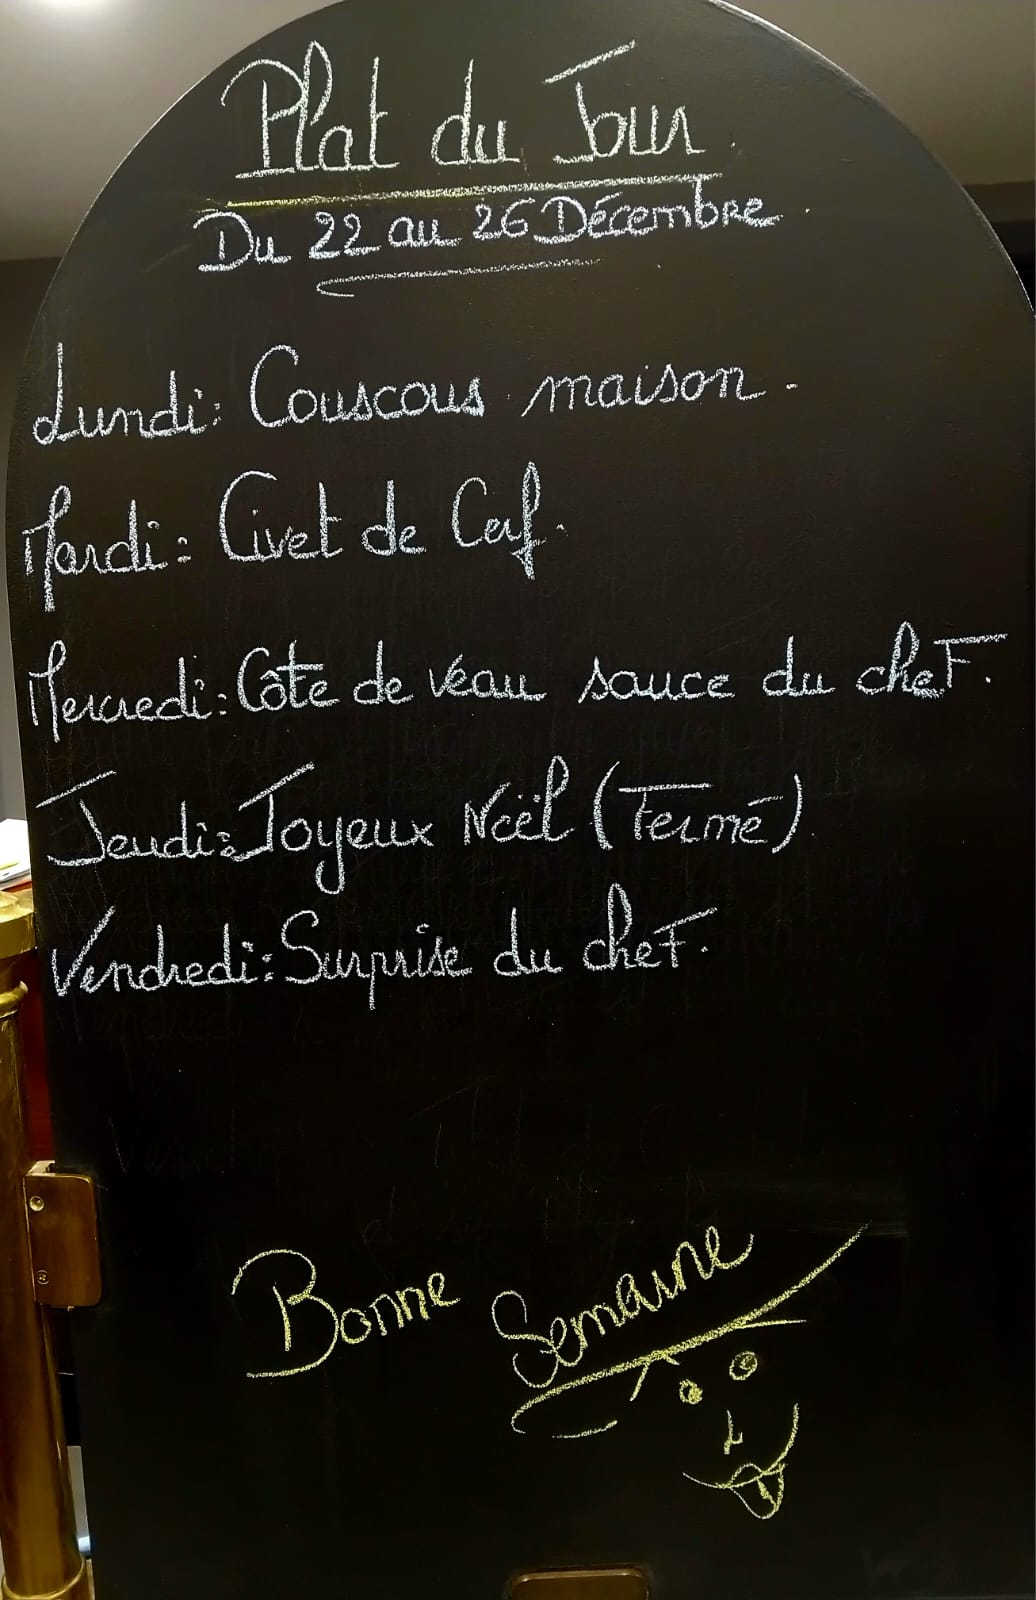 Plat du Jour.
Du 22 au 26 Décembre.
Lundi: Couscous maison.
Mardi: Civet de Cerf.
Mercredi: Côte de veau sauce du cheF.
Jeudi: Joyeux Noël (Fermé)
Vendredi: Surprise du cheF.
Bonne Semaine